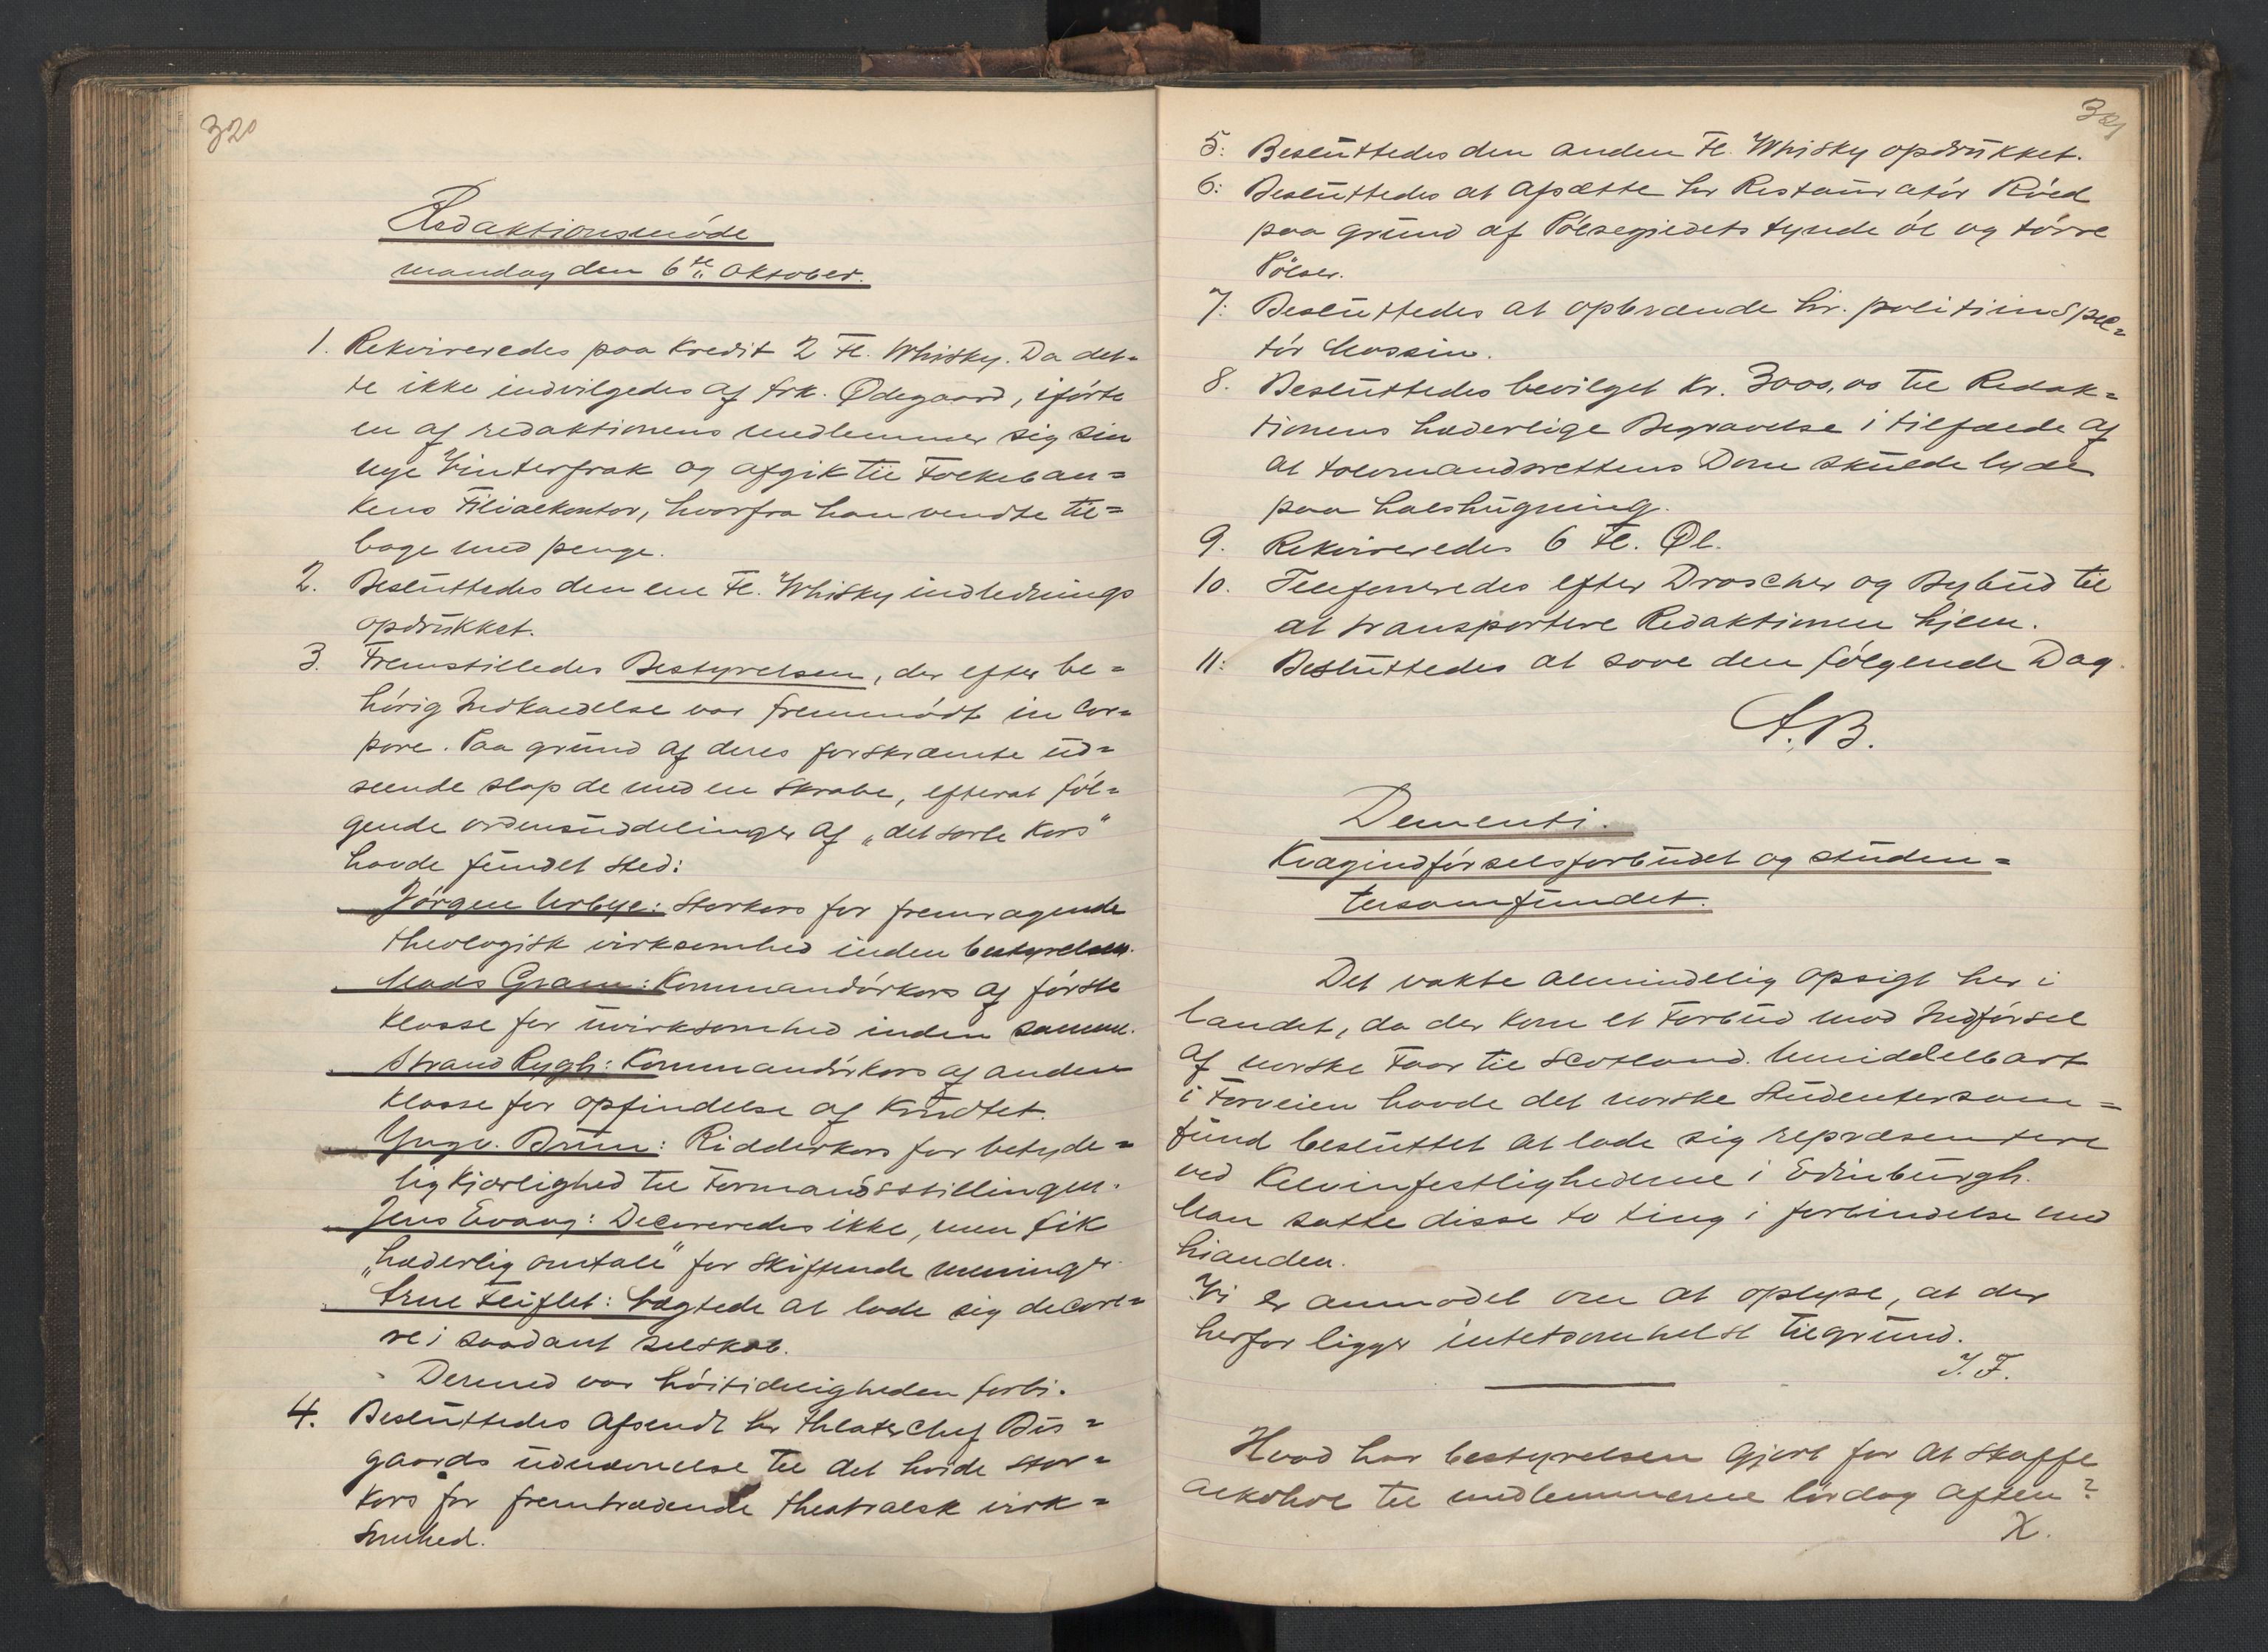 320
Redaktionsmöde
mandag den 6te Oktober.
1. Rekvireredes paa Kredit 2 Fl. Whisky. Da det=
te ikke indvilgedes af frk. Ødegaard, iførte
en af redaktionens medlemmer sig sin
nye Vinterfrak og afgik til Folkeban=
kens Filialkontor, hvorfra han vendte til=
bage med penge.
2. Besluttedes den ene Fl. Whisky indlednings
opdrukket.
3. Fremstilledes Bestyrelsen, der efter be=
hörig Indkaldelse var fremmödt in Cor=
pore. Paa grund af deres forskræmte ud=
seende slap de med en Skrabe, efterat föl=
gende ordensuddelinger af „det sorte Kors"
havde fundet sted:
Jörgen Urbye: Storkors for fremragende
theologisk virksomhed inden bestyrelsen.
Mads Gram: Kommandörkors af förste
Klasse for uvirksomhed inden samme.
Strand Rygh: Kommandörkors af anden
Klasse for opfindelse af Krudtet.
Yngv. Brun: Ridderkors for betyde=
lig Kjærlighed til Formandsstillingen.
Jens Evang: Decoreredes ikke, men fik
„hæderlig omtale" for skiftende meninger.
Arne Fliflet: Vægtede at lade sig decore=
re i saadant selskab.
Dermed var höitideligheden forbi.
4. Besluttedes afsendt hr theaterchef Bis=
gaards udnævnelse til det hvide stor=
kors for fremtrædende theatralsk virk=
somhed.
321
5: Besluttedes den anden Fl. Whisky opdrukket.
6: Besluttedes at afsætte hr Restauratör Röed
paa grund af Pölsegildets tynde öl og törre
Pölser.
7: Besluttedes at opbrænde hr. politiinspec=
tör Mossin.
8. Besluttedes bevilget Kr. 3000,00 til Redak=
tionens hæderlige Begravelse i tilfælde af
at tolvmandsrettens Dom skulde lyde
paa halshugning.
9. Rekvireredes 6 Fl. Øl.
10. Telefoneredes efter Droscher og Bybud til
at transportere Redaktionen hjem.
11: Besluttedes at sove den fölgende Dag.
A.B.
Dementi.
Kvægindförselsforbudet og studen=
tersamfundet.
Det vakte almindelig opsigt her i
landet, da der kom et Forbud mod Indförsel
af norske Faar til Scotland. Umiddelbart
i Forveien havde det norske Studentersam=
fund besluttet at lade sig repræsentere
ved Kelvinfestlighederne i Edinburgh.
Man satte disse to ting i forbindelse med
hianden.
Vi er anmodet om at oplyse, at der
herfor ligger intetsomhelst tilgrund.
J.F.
Hvad har bestyrelsen gjort for at skaffe
alkohol til medlemmerne lördag aften?
X.